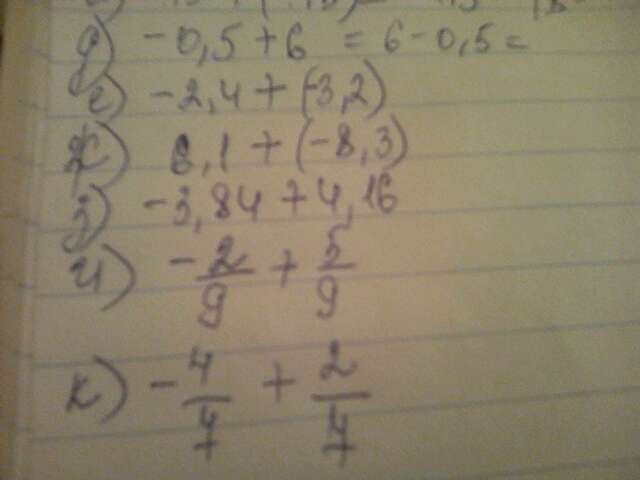 д) -0,5 + 6 = 6 - 0,5 =
е) -2,4 + (-3,2)
ж) 6,1 + (-8,3)
з) -3,84 + 4,16
и) -2/9 + 5/9
к) -4/7 + 2/7